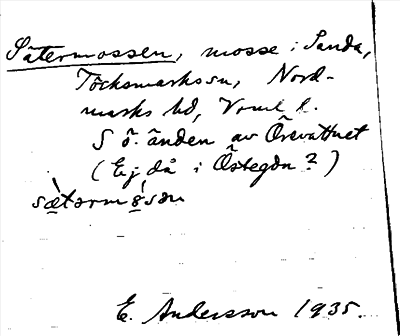 Sätermossen, mosse i Sanda,
Töcksmarks sn, Nord-
marks hd, Vrml l.
S ö. änden av Örevattnet
(Ej då i Östegdn?)
sætərmɵ̀sən
E. Andersson 1935.